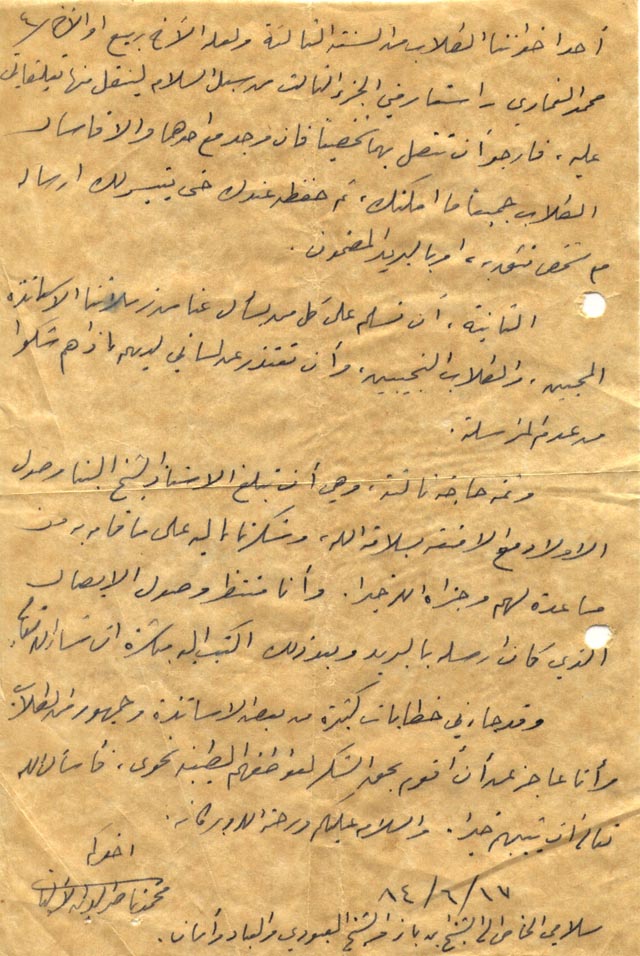 أحد إخواننا الطلاب من السنة الثالثة ولعله الأخ ربيع أو الأخ
محمد الغماري - استعار مني الجزء الثالث من سبل السلام لينقل منها تعليقاتي
عليه، فأرجو أن تتصل بهما شخصياً فإن وجد مع أحدهما والا فاسأل
الطلاب جميعاً ما أمكنك، ثم حفظه عندك حتى يتيسر لك ارساله
مع شخص تثق به، او بالبريد المضمون.
الثانية، أن تسلم على كل من يسأل عنا من زملائنا الاساتذة
المحبين، والطلاب النجيبين، وأن تعتذر عن لساني لديهم إذا هم شكوا
من عدم المراسلة.
وثمة حاجة ثالثة، وهي أن تبلغ الاستاذ الشيخ البنا وصول
الاولاد مع الامتعة بسلامة الله، وشكرنا إليه على ما قام به من
مساعدة لهم وجزاه الله خيرا. وأنا منتظر وصول الايصال
الذي كان ارسله بالبريد وبعد ذلك اكتب إليه مباشرة ان شاء الله تعالى
وقد جاءني خطابات كثيرة من بعض الاساتذة وجمهور من الطلاب
وأنا عاجز عن أن أقوم بحق الشكر لعواطفهم الطيبة نحوي، فأسأل الله
تعالى أن يثيبهم خيرا. والسلام عليكم ورحمة الله وبركاته.
اخوكم
محمد ناصر الدين الألباني
٨٤/٦/١٧
سلامي الخاص الى الشيخ بن باز والشيخ العبودي والعباد وأمان.